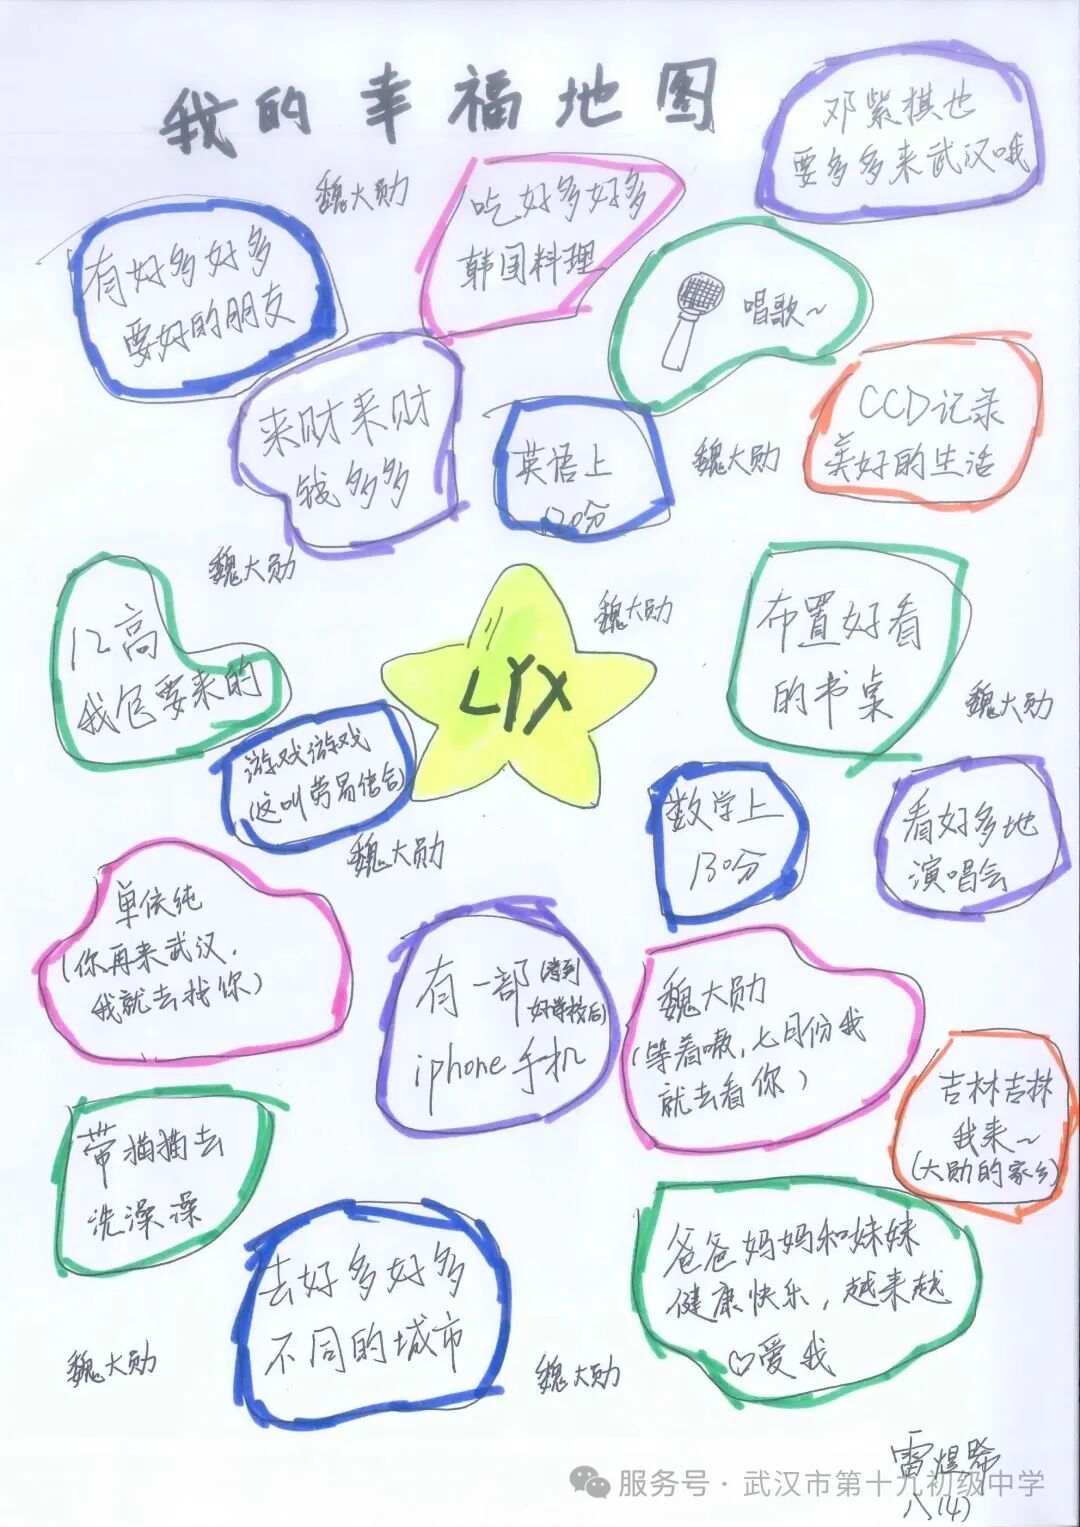 我的幸福地图
邓紫棋也
要多多来武汉哦
魏大勋
吃好多好多
韩国料理
有好多好多
要好的朋友
唱歌~
来财来财
钱多多
英语上
120分
魏大勋
CCD记录
美好的生活
魏大勋
12高
我包要来的
LYX
魏大勋
布置好看
的书桌
魏大勋
游戏游戏
(这叫劳易结合)
魏大勋
数学上
130分
看好多地
演唱会
单依纯
(你再来武汉,
我就去找你)
有一部(考到
好学校后)
iphone手机
魏大勋
(等着嗷,七月份我
就去看你)
吉林吉林
我来~
(大勋的家乡)
带猫猫去
洗澡澡
去好多好多
不同的城市
爸爸妈妈和妹妹
健康快乐,越来越
♡爱我
魏大勋
魏大勋
雷煜希
八(4)
服务号·武汉市第十九初级中学